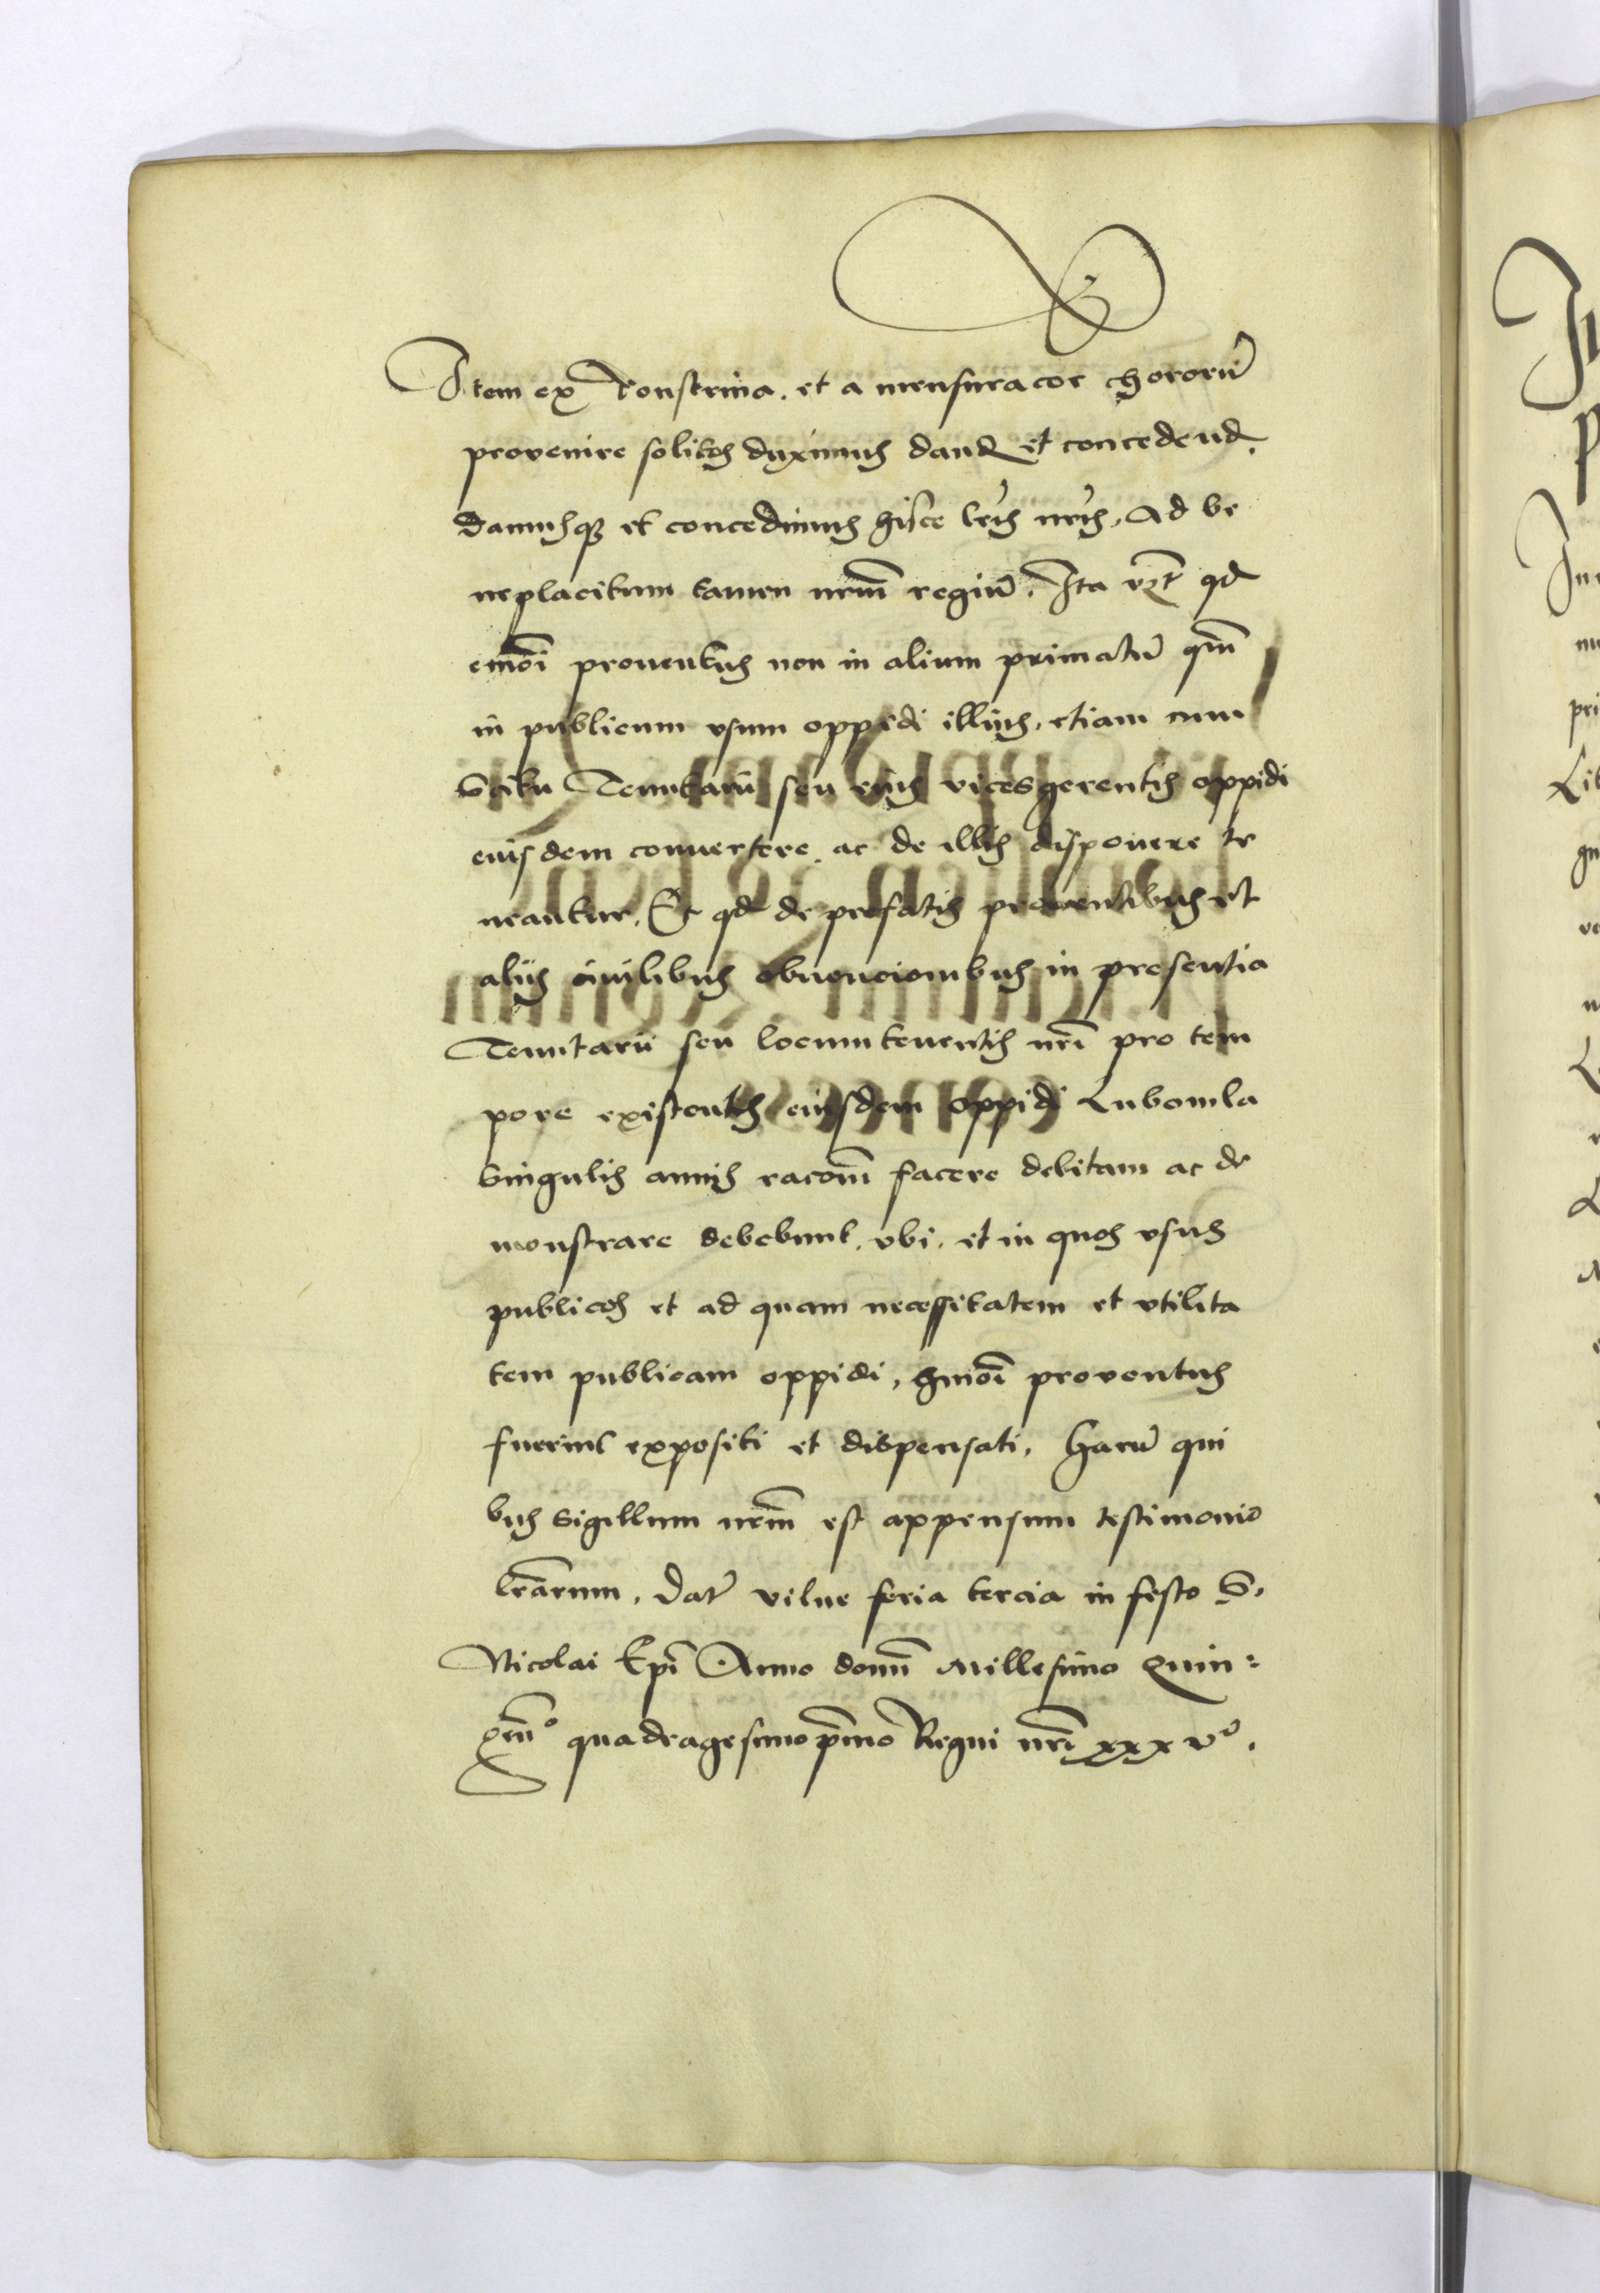 Item ex Tonstrina. et a mensuracõe chororũ
provenire solitos duximus dand et concedend.
Damusq et concedimus hisce lr̃is nr̃is. Ad be
neplacitum tamen nr̃m regiũ. Ita vzt qd
emõi proventus non in alium primatũ qm̃
in publicum vsum oppidi illius, etiam cum
Scitu Tenutarii seu eius vicesgerentis oppidi
eiusdem convertere. ac de illis disponere te
neantur. Et qd de prefatis proventibus et
aliis civilibus obvencionibus in presentia
Tenutarii seu locumtenentis nr̃i pro tem
pore existentis eiusdem oppidi Lubomla
Singulis annis racõm facere debitam ac de
monstrare debebunt. vbi. et in quos vsus
publicos et ad quam necessitatem et vtilita
tem publicam oppidi, hmõi proventus
fuerint expositi et dispensati. Harũ qui
bus Sigillum nr̃m est appensum testimonio
lr̃arum. Dat̃ vilne feria tercia in festo S.
Nicolai Ep̃i Anno domĩ Millesimo Quin:
gm̃o quadragesimo p̃mo Regni nr̃i xxxvo.